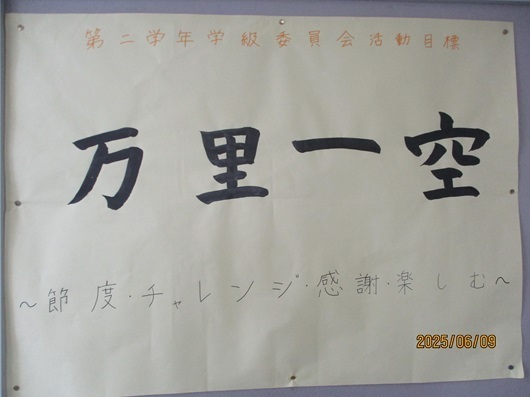 第二学年学級委員会活動目標
万里一空
～節度・チャレンジ・感謝・楽しむ～
2025/06/09